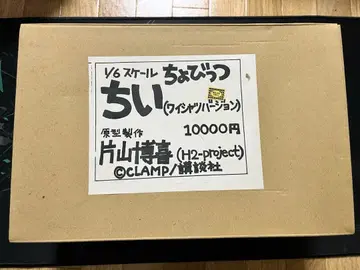 1/6 スケール ちょびっつ
ちい(ワイシャツバージョン)
原型製作 10000円
片山博喜(H2-project)
©CLAMP/講談社